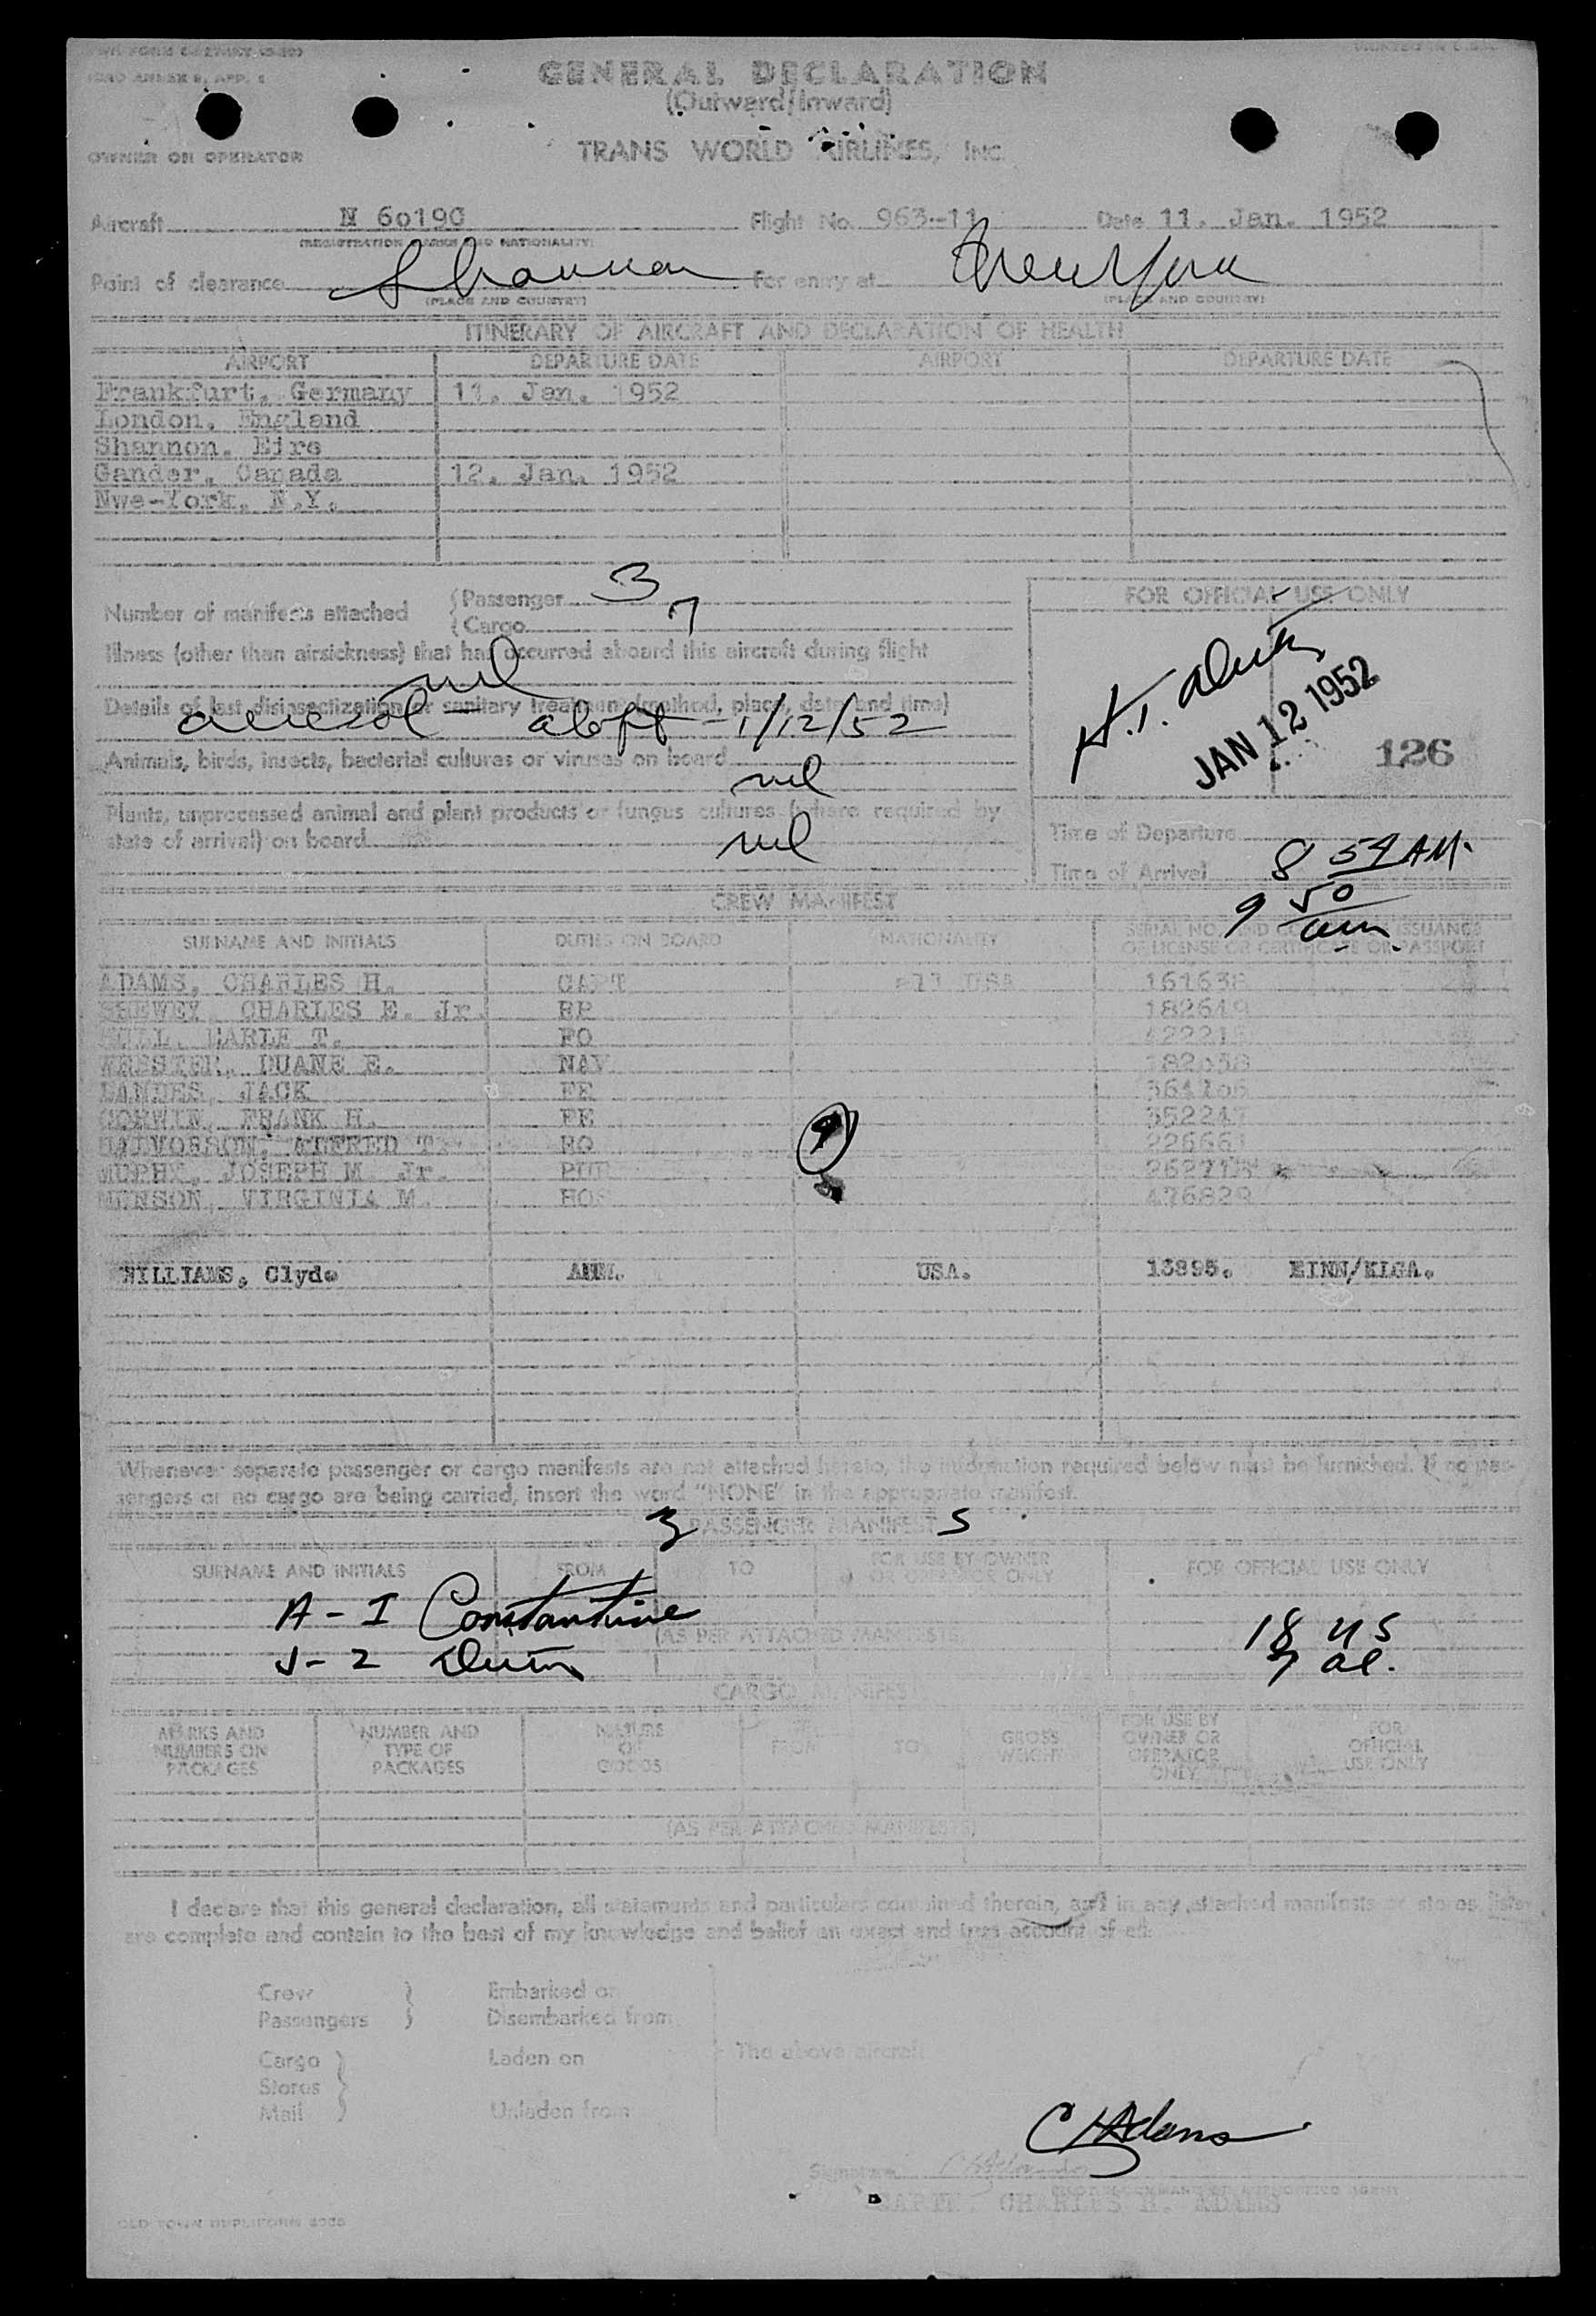 ICAO ANNEX 9, APP. 1
GENERAL DECLARATION
(Outward/Inward)
OWNER OR OPERATOR
TRANS WORLD AIRLINES, INC.
Aircraft N 6019C Flight No. 963-11 Date 11. Jan. 1952
(REGISTRATION MARKS AND NATIONALITY)
Point of clearance Shannon For entry at New York
(PLACE AND COUNTRY) (PLACE AND COUNTRY)
ITINERARY OF AIRCRAFT AND DECLARATION OF HEALTH
AIRPORT DEPARTURE DATE AIRPORT DEPARTURE DATE
Frankfurt, Germany 11. Jan. 1952
London, England
Shannon, Eire
Gander, Canada 12. Jan. 1952
Nwe-York, N.Y.
Number of manifests attached
Passenger 3
Cargo 7
FOR OFFICIAL USE ONLY
Illness (other than airsickness) that has occurred aboard this aircraft during flight
nil
Details of last disinsectization or sanitary treatment (method, place, date and time)
aerosol - aloft - 1/12/52
JAN 12 1952
126
Animals, birds, insects, bacterial cultures or viruses on board
nil
Plants, unprocessed animal and plant products or fungus cultures (where required by
state of arrival) on board nil
Time of Departure
Time of Arrival 8 54 AM.
9 50 am
CREW MANIFEST
SURNAME AND INITIALS DUTIES ON BOARD NATIONALITY SERIAL NO. AND ISSUANCE
OF LICENSE OR CERTIFICATE OR PASSPORT
ADAMS, CHARLES H. CAPT all USA 161638
CHARLES E. Jr. 182649
EARLE T. FO
WEBSTER, DUANE E. NAV
JACK FE
CORWIN, FRANK H. FE
HALVORSON, ALFRED T. RO
MUPHY, JOSEPH M. Jr. PUR
MUNSON, VIRGINIA M. HOS 476829
9
WILLIAMS, Clyde ADM. USA. 13895. EINN/KLGA.
Whenever separate passenger or cargo manifests are not attached hereto, the information required below must be furnished. If no pas-
sengers or no cargo are being carried, insert the word "NONE" in the appropriate manifest.
3 PASSENGER MANIFEST S
SURNAME AND INITIALS FROM TO FOR USE BY OWNER OR OPERATOR ONLY FOR OFFICIAL USE ONLY
A - I Constantine 18 US
(AS PER ATTACHED MANIFESTS)
J - 2 7 al.
CARGO MANIFEST
MARKS AND NUMBERS ON PACKAGES NUMBER AND TYPE OF PACKAGES NATURE OF GOODS FROM TO GROSS WEIGHT FOR USE BY OWNER OR OPERATOR ONLY FOR OFFICIAL USE ONLY
(AS PER ATTACHED MANIFESTS)
I declare that this general declaration, all statements and particulars contained therein, and in any attached manifests or stores lists
are complete and contain to the best of my knowledge and belief an exact and true account of all:
Crew Embarked on
Passengers Disembarked from
Cargo Laden on The above aircraft
Stores
Mail Unladen from
CHAdams
Signature
CAPT. CHARLES H. ADAMS